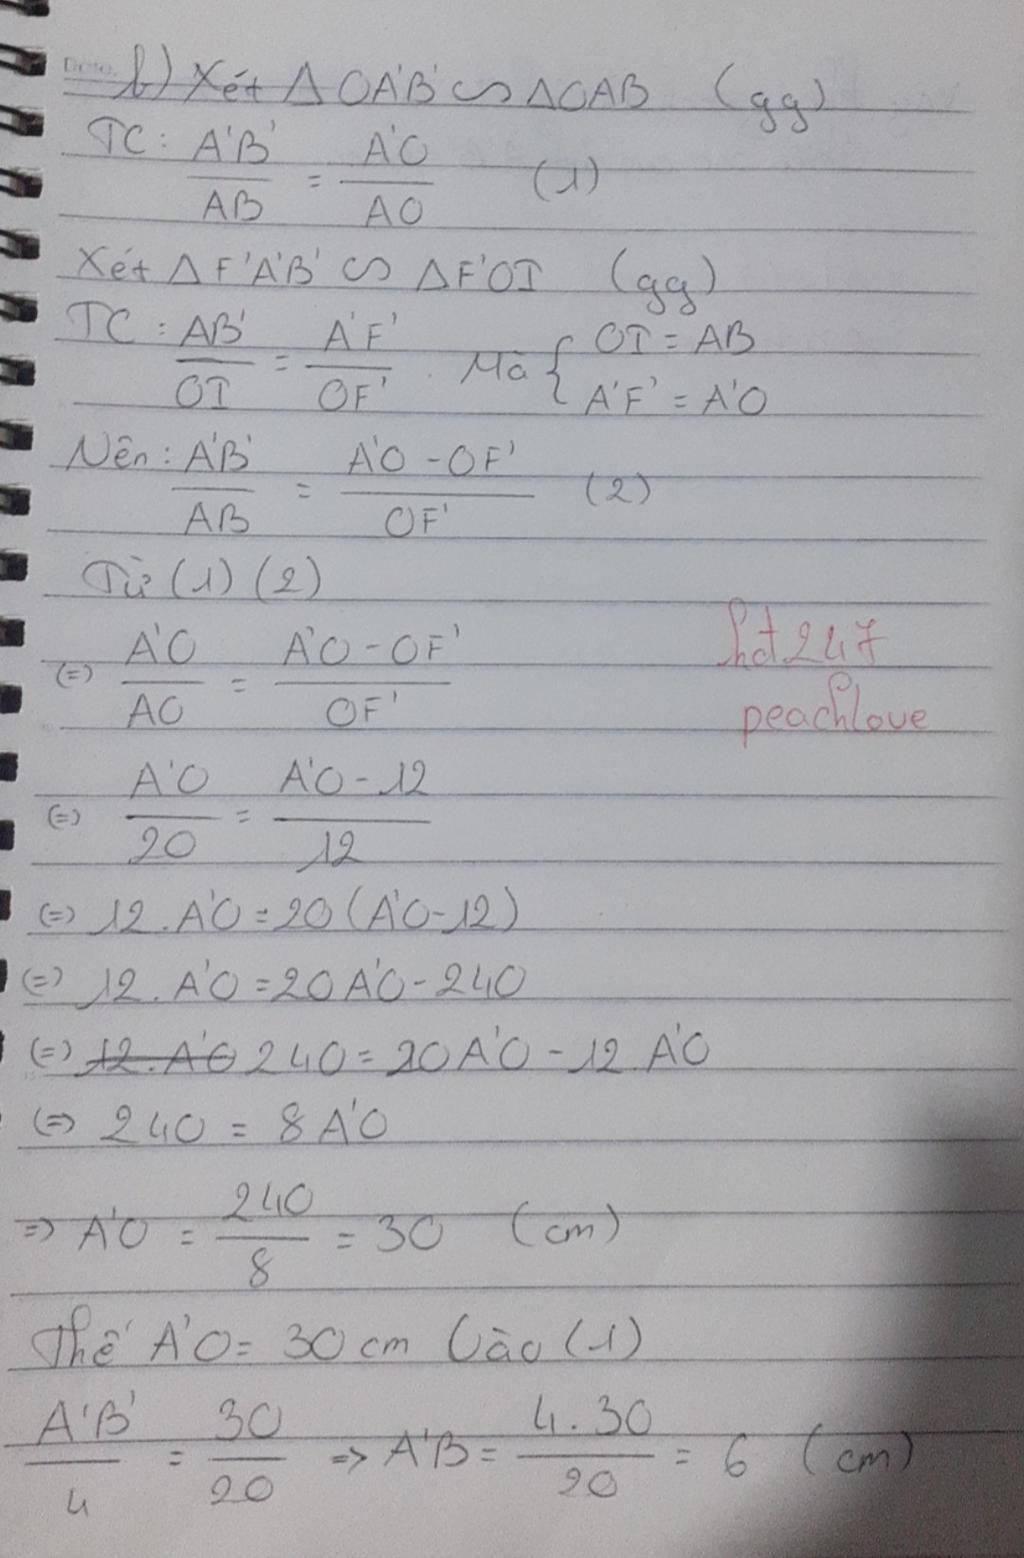 Date.
b) Xét ΔOA'B' ∽ ΔOAB (gg)
TC: A'B'/AB = A'O/AO (1)
Xét ΔF'A'B' ∽ ΔF'OI (gg)
TC: AB'/OI = A'F'/OF'. Mà { OI = AB
A'F' = A'O
Nên: A'B'/AB = A'O - OF'/OF' (2)
Từ (1) (2)
(=) A'O/AO = A'O - OF'/OF'
hd247
peachlove
(=) A'O/20 = A'O - 12/12
(=) 12. A'O = 20 (A'O - 12)
(=) 12. A'O = 20 A'O - 240
(=) 12. A'O 240 = 20 A'O - 12. A'O
(=) 240 = 8 A'O
=> A'O = 240/8 = 30 (cm)
Thế A'O = 30 cm Vào (1)
A'B'/4 = 30/20 => A'B = 4.30/20 = 6 (cm)